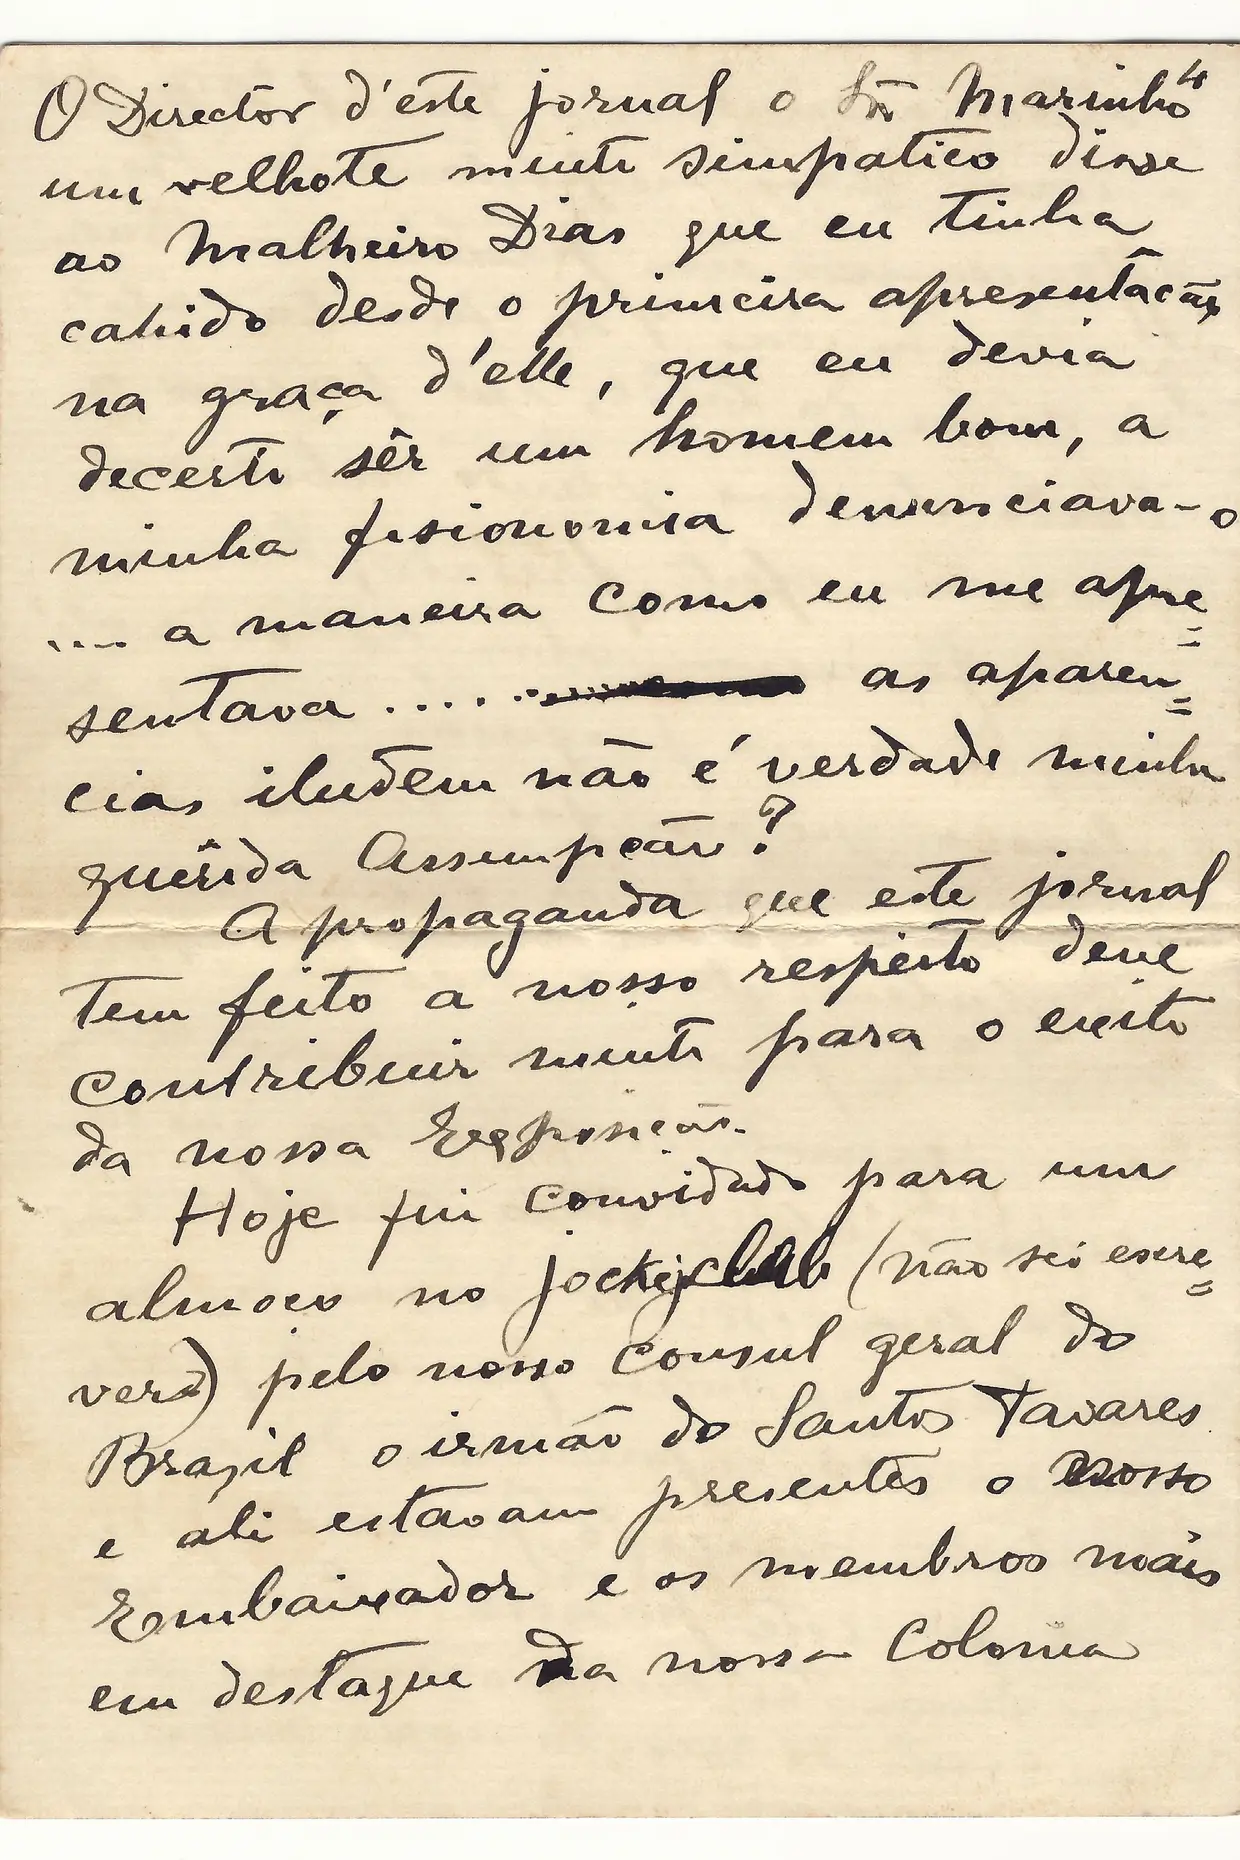 4
O Director d'este jornal o Snr Marinho
um velhote muito simpatico disse
ao Malheiro Dias que eu tinha
cahido desde o primeira apresentação
na graça d'elle, que eu devia
decerto sêr um homem bom, a
minha fisionomia denunciava-o
.... a maneira como eu me apre=
sentava ..... as aparen=
cias iludem não é verdade minha
quêrida Assumpção?
A propaganda que este jornal
tem feito a nosso respeito deve
contribuir muito para o exito
da nossa Exposição.
Hoje fui convidado para um
almoço no jockeyclub (não sei escre=
ver) pelo nosso Consul geral do
Brazil o irmão do Santos Tavares
e ali estavam presentes o nosso
Embaixador e os membros mais
em destaque da nossa Colonia